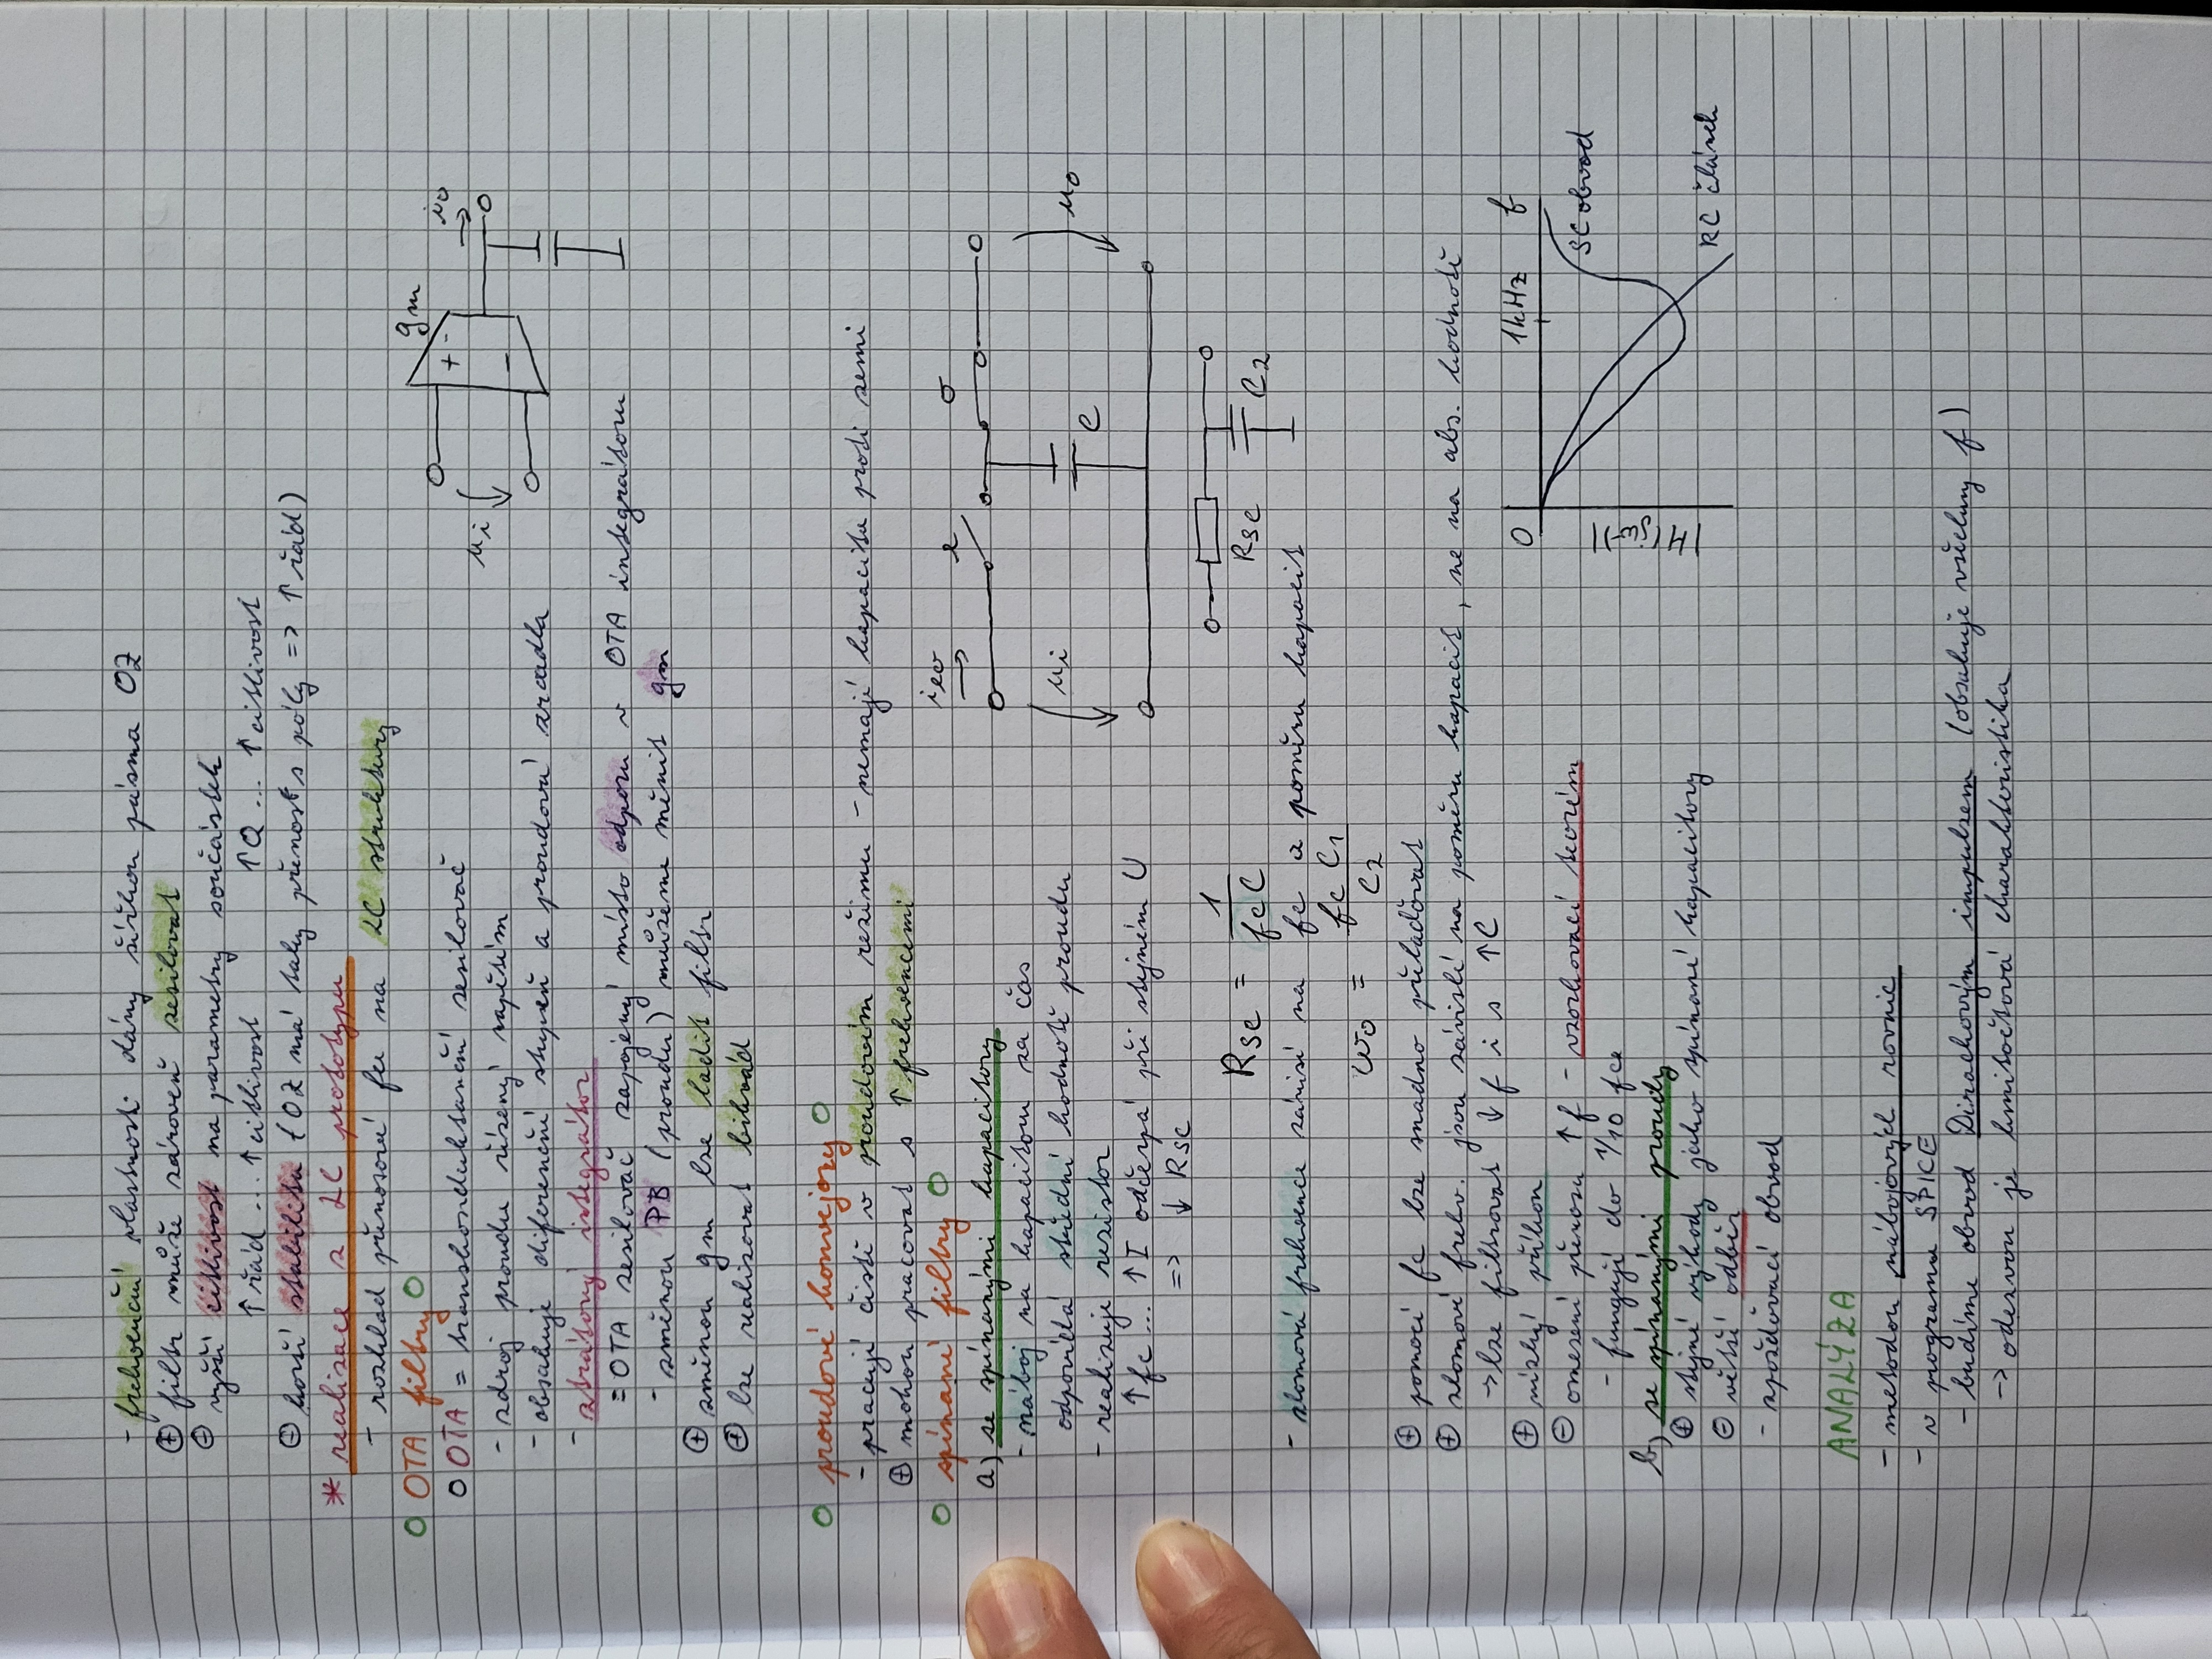 - frekvenční vlastnosti dány šířkou pásma OZ
⊕ filtr může zároveň zesilovat
⊖ vyšší citlivost na parametry součástek
↑ řád ... ↑ citlivost ↑Q ... ↑ citlivost
⊖ horší stabilita (OZ má taky přenos s póly => ↑ řád)
* realizace z LC prototypu
- rozklad přenosové fce na LC struktury
O OTA filtry O
O OTA = transkonduktanční zesilovač
- zdroj proudu řízený napětím
- obsahuje diferenční stupeň a proudová zrcadla
- ztrátový integrátor
= OTA zesilovač zapojený místo odporu v OTA integrátoru
- změnou PB (proudu) můžeme měnit gm
⊕ změnou gm lze ladit filtr
⊕ lze realizovat bikvád
gm
+ -
-
ui
io
O proudové konvejory O
- pracují čistě v proudovém režimu - nemají kapacitu proti zemi
⊕ mohou pracovat s ↑ frekvencemi
O spínané filtry O
a) se spínanými kapacitory
- náboj na kapacitoru za čas
odpovídá střední hodnotě proudu
- realizuje rezistor
↑ fc ... ↑ I odčerpá při stejném U
=> ↓ Rsc
ieo
e
σ
ui
C
uo
Rsc = 1 / fcC
Rsc
C2
- zlomová frekvence závisí na fc a poměru kapacit
ω0 = fc C1 / C2
⊕ pomocí fc lze snadno přelaďovat
⊕ zlomové frekv. jsou závislé na poměru kapacit, ne na abs. hodnotě
→ lze filtrovat ↓ f i s ↑C
⊕ nízký příkon
⊖ omezení přenosu ↑ f - vzorkovací teorém
- fungují do 1/10 fce
0 1kHz f
|H(jω)|
SC obvod
RC článek
b) se spínanými proudy
⊕ stejné výhody jako spínané kapacitory
⊖ větší odběr
- zpožďovací obvod
ANALÝZA
- metodou nábojových rovnic
- v programu SPICE
- budíme obvod Dirackovým impulzem (obsahuje všechny f)
→ odezvou je kmitočtová charakteristika